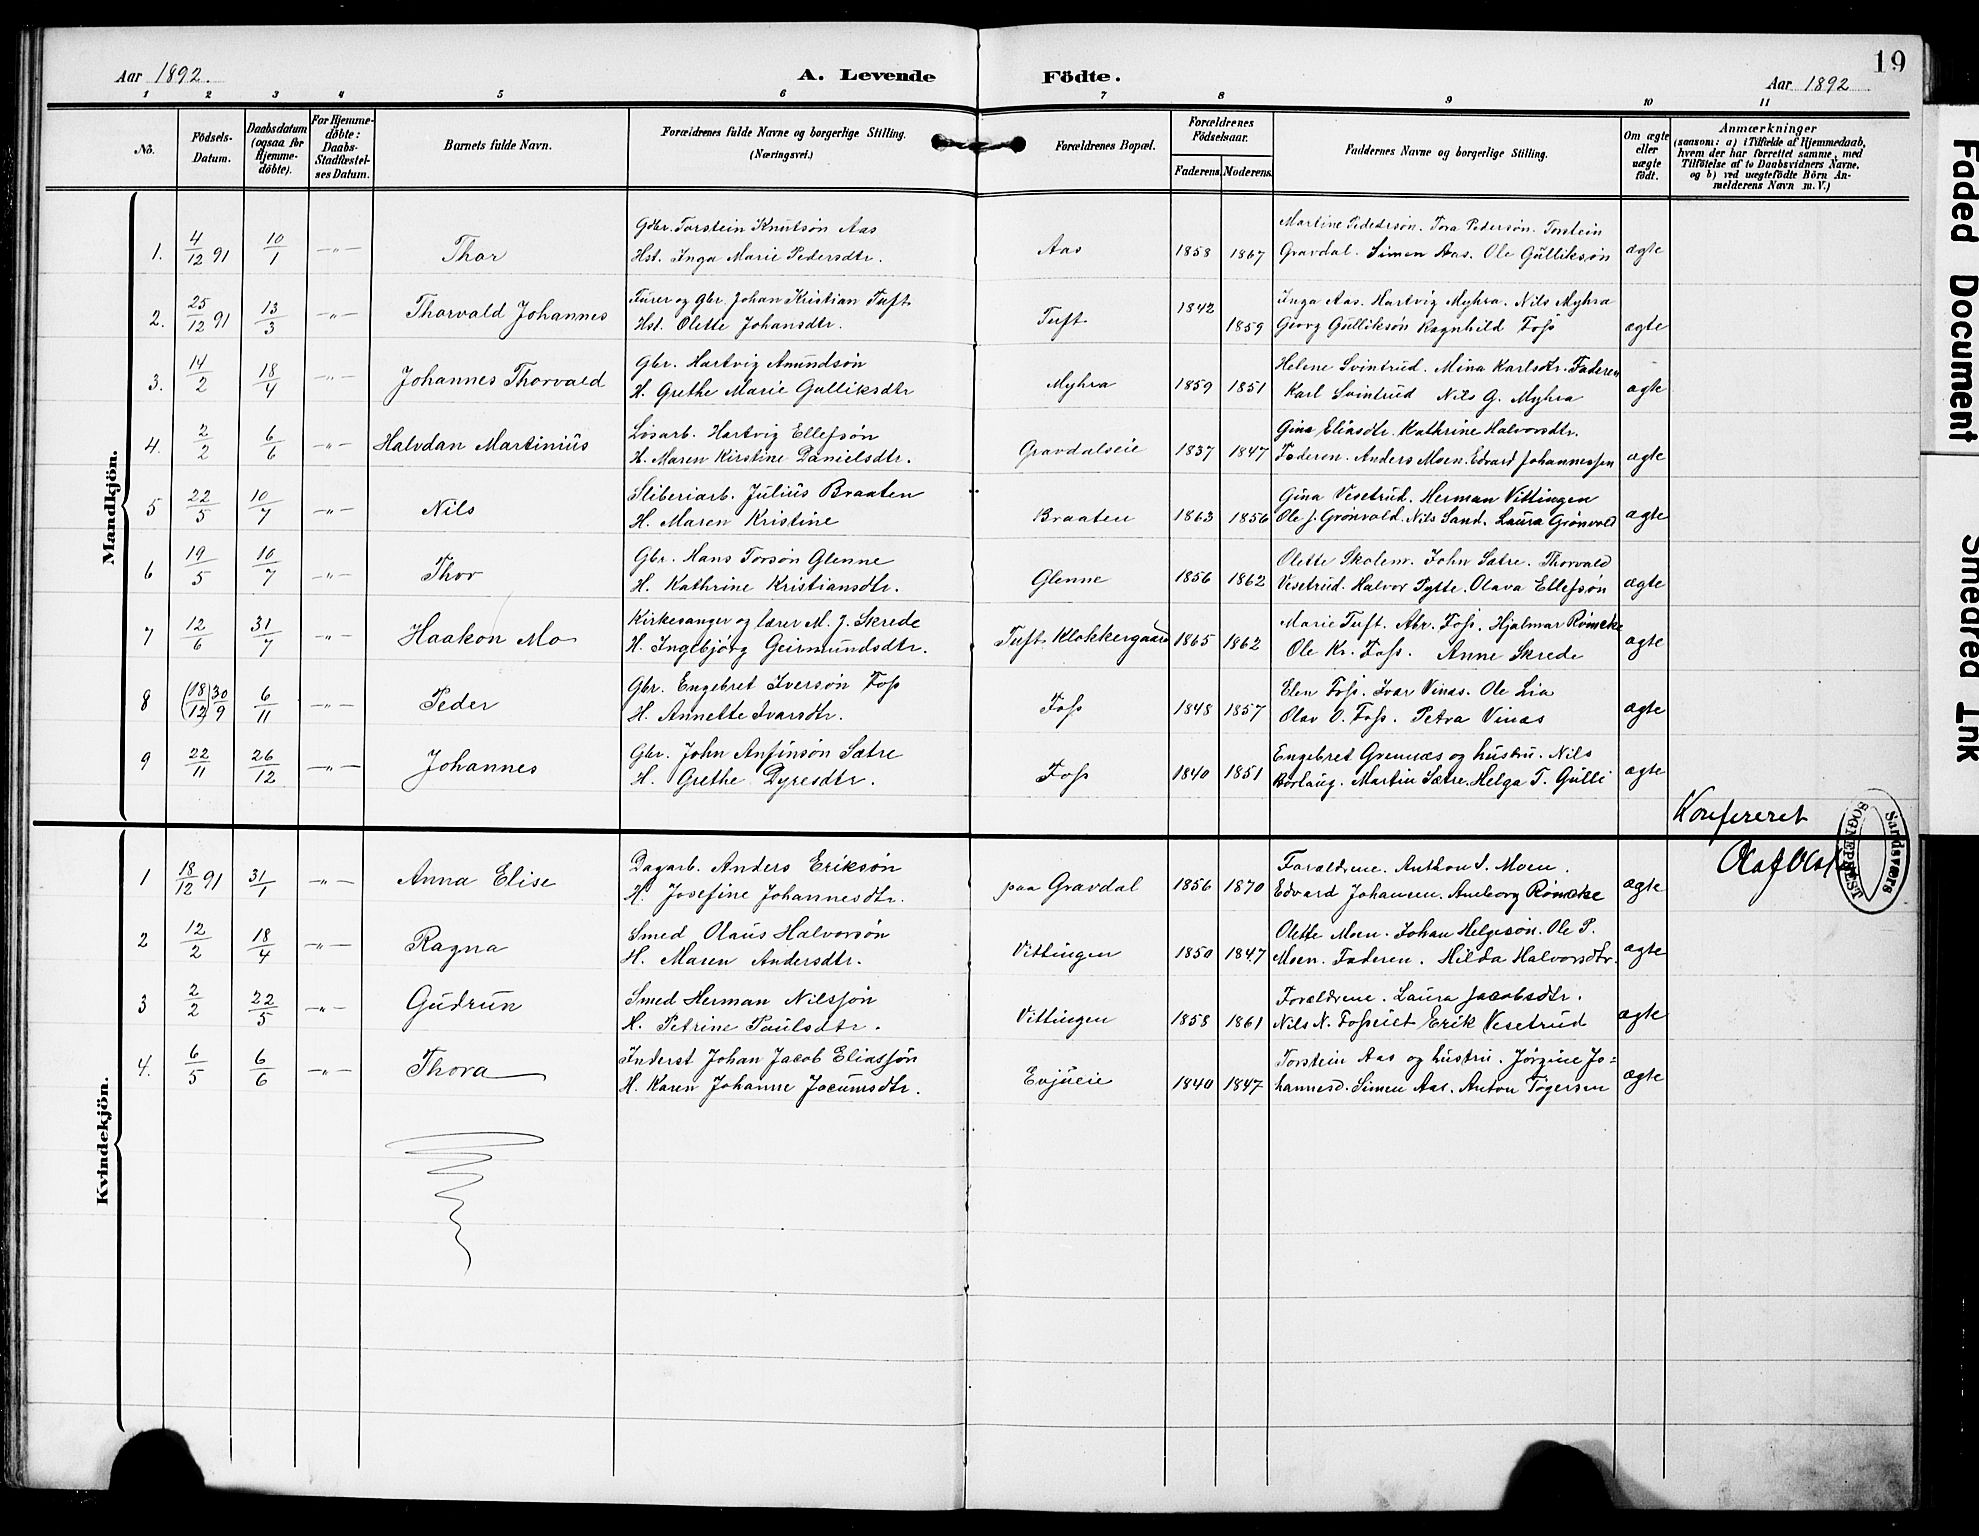 19
Aar 1892.
A. Levende Födte.
Aar 1892
1 2 3 4 5 6 7 8 9 10 11
No.
Födsels-
Datum.
Daabsdatum
(ogsaa for
Hjemme-
döbte).
For Hjemme-
döbte:
Daabs-
Stadfæstel-
ses Datum.
Barnets fulde Navn.
Forældrenes fulde Navne og borgerlige Stilling.
(Næringsvei.)
Forældrenes Bopæl.
Forældrenes
Födselsaar.
Faderens. Moderens.
Faddernes Navne og borgerlige Stilling.
Om ægte
eller
uægte
födt.
Anmærkninger
(saasom: a) i Tilfælde af Hjemmedaab,
hvem der har forrettet samme, med
Tilföielse af to Daabsvidners Navne.
og b) ved uægtefödte Börn An-
melderens Navn m. V.)
Mandkjön.
1. 4/12 91 10/1 -"- Thor
Gbr. Torstein Knutsön Aas
Hst. Inga Marie Pedersdtr.
Aas 1858 1867
Martine Pedersön. Tora Pedersön. Torstein
Gravdal. Simen Aas. Ole Gulliksön
ægte
2. 25/12 91 13/3 -"- Thorvald Johannes
Furer og Gbr. Johan Kristian Tuft
Hst. Olette Johansdtr.
Tuft 1842 1859
Inga Aas. Hartvig Myhra. Nils Myhra
Georg Gulliksön Ragnhild Foss
ægte
3. 14/2 18/4 -"- Johannes Thorvald
Gbr. Hartvig Amundsön
H. Grethe Marie Gulliksdtr
Myhra 1859 1851
Helene Svintrud. Mina Karlsdtr. Faderen
Karl Svintrud Nils G. Myhra
ægte
4. 2/2 6/6 -"- Halvdan Martinius
Løsarb. Hartvig Ellefsön
H. Maren Kirstine Danielsdtr.
Gravdalseie 1837 1847
Gina Eliasdtr. Kathrine Halvorsdtr.
Faderen. Anders Moen. Edvard Johannessen
ægte
5 22/5 10/7 -"- Nils
Sliberiarb. Julius Braaten
H. Maren Kristine
Braaten 1863 1856
Gina Vesetrud. Herman Vittingen
Ole J. Grönvold. Nils Sand. Laura Grönvold
ægte
6 19/5 10/7 -"- Thor
Gbr. Hans Torsön Glenne
H. Kathrine Kristiansdtr.
Glenne 1856 1862
Olette Skolem. John Sætre. Thorvald
Vesetrud. Halvor Tytte. Olava Ellefsön
ægte
7 12/6 31/7 -"- Haakon Mo
Kirkesanger og lærer M. J. Skrede
H. Ingebjörg Geirmundsdtr.
Tuft Klokkergaard 1865 1862
Marie Tuft. Abr. Foss. Hjalmar
Ole Kr. Foss. Anne Skrede
ægte
8 (18/12) 30/9 6/11 -"- Peder
Gbr. Engebret Iversön Foss
H. Annette Ivarsdtr.
Foss 1848 1857
Elen Foss. Ivar Vinæs. Ole Lia
Olav O. Foss. Petra Vinæs
ægte
9 22/11 26/12 -"- Johannes
Gbr. John Anfinsön Sætre
H. Grethe Dyresdtr.
Foss 1840 1851
Engebret Grennæs og hustru. Nils
Borlaug. Martin Sætre. Helga T. Gulli
ægte
Konfereret
Sandsværs
SOGNEPREST
Kvindekjön.
1 18/12 91 31/1 -"- Anna Elise
Dagarb. Anders Eriksön
H. Josefine Johannesdtr.
paa Gravdal 1856 1870
Forældrene. Anthon S. Moen.
Edvard Johansen. Anborg
ægte
2 12/2 18/4 -"- Ragna
Smed Olaus Halvorsön
H. Maren Andersdtr.
Vittingen 1850 1847
Olette Moen. Johan Helgesön. Ole P.
Moen. Faderen. Hilda Halvorsdtr.
ægte
3 2/2 22/5 -"- Gudrun
Smed Herman Nilssön
H. Petrine Paulsdtr.
Vittingen 1858 1861
Forældrene. Laura Jacobsdtr.
Nils N. Fosseiet Erik Vesetrud
ægte
4. 6/5 6/6 -"- Thora
Inderst Johan Jacob Eliassön
H. Karen Johanne Jocumsdtr.
Evjueie 1840 1847
Torstein Aas og hustru. Jörgine Jo=
hannesd. Simen Aas. Anton Togersen
ægte
Faded Document
Smeared Ink